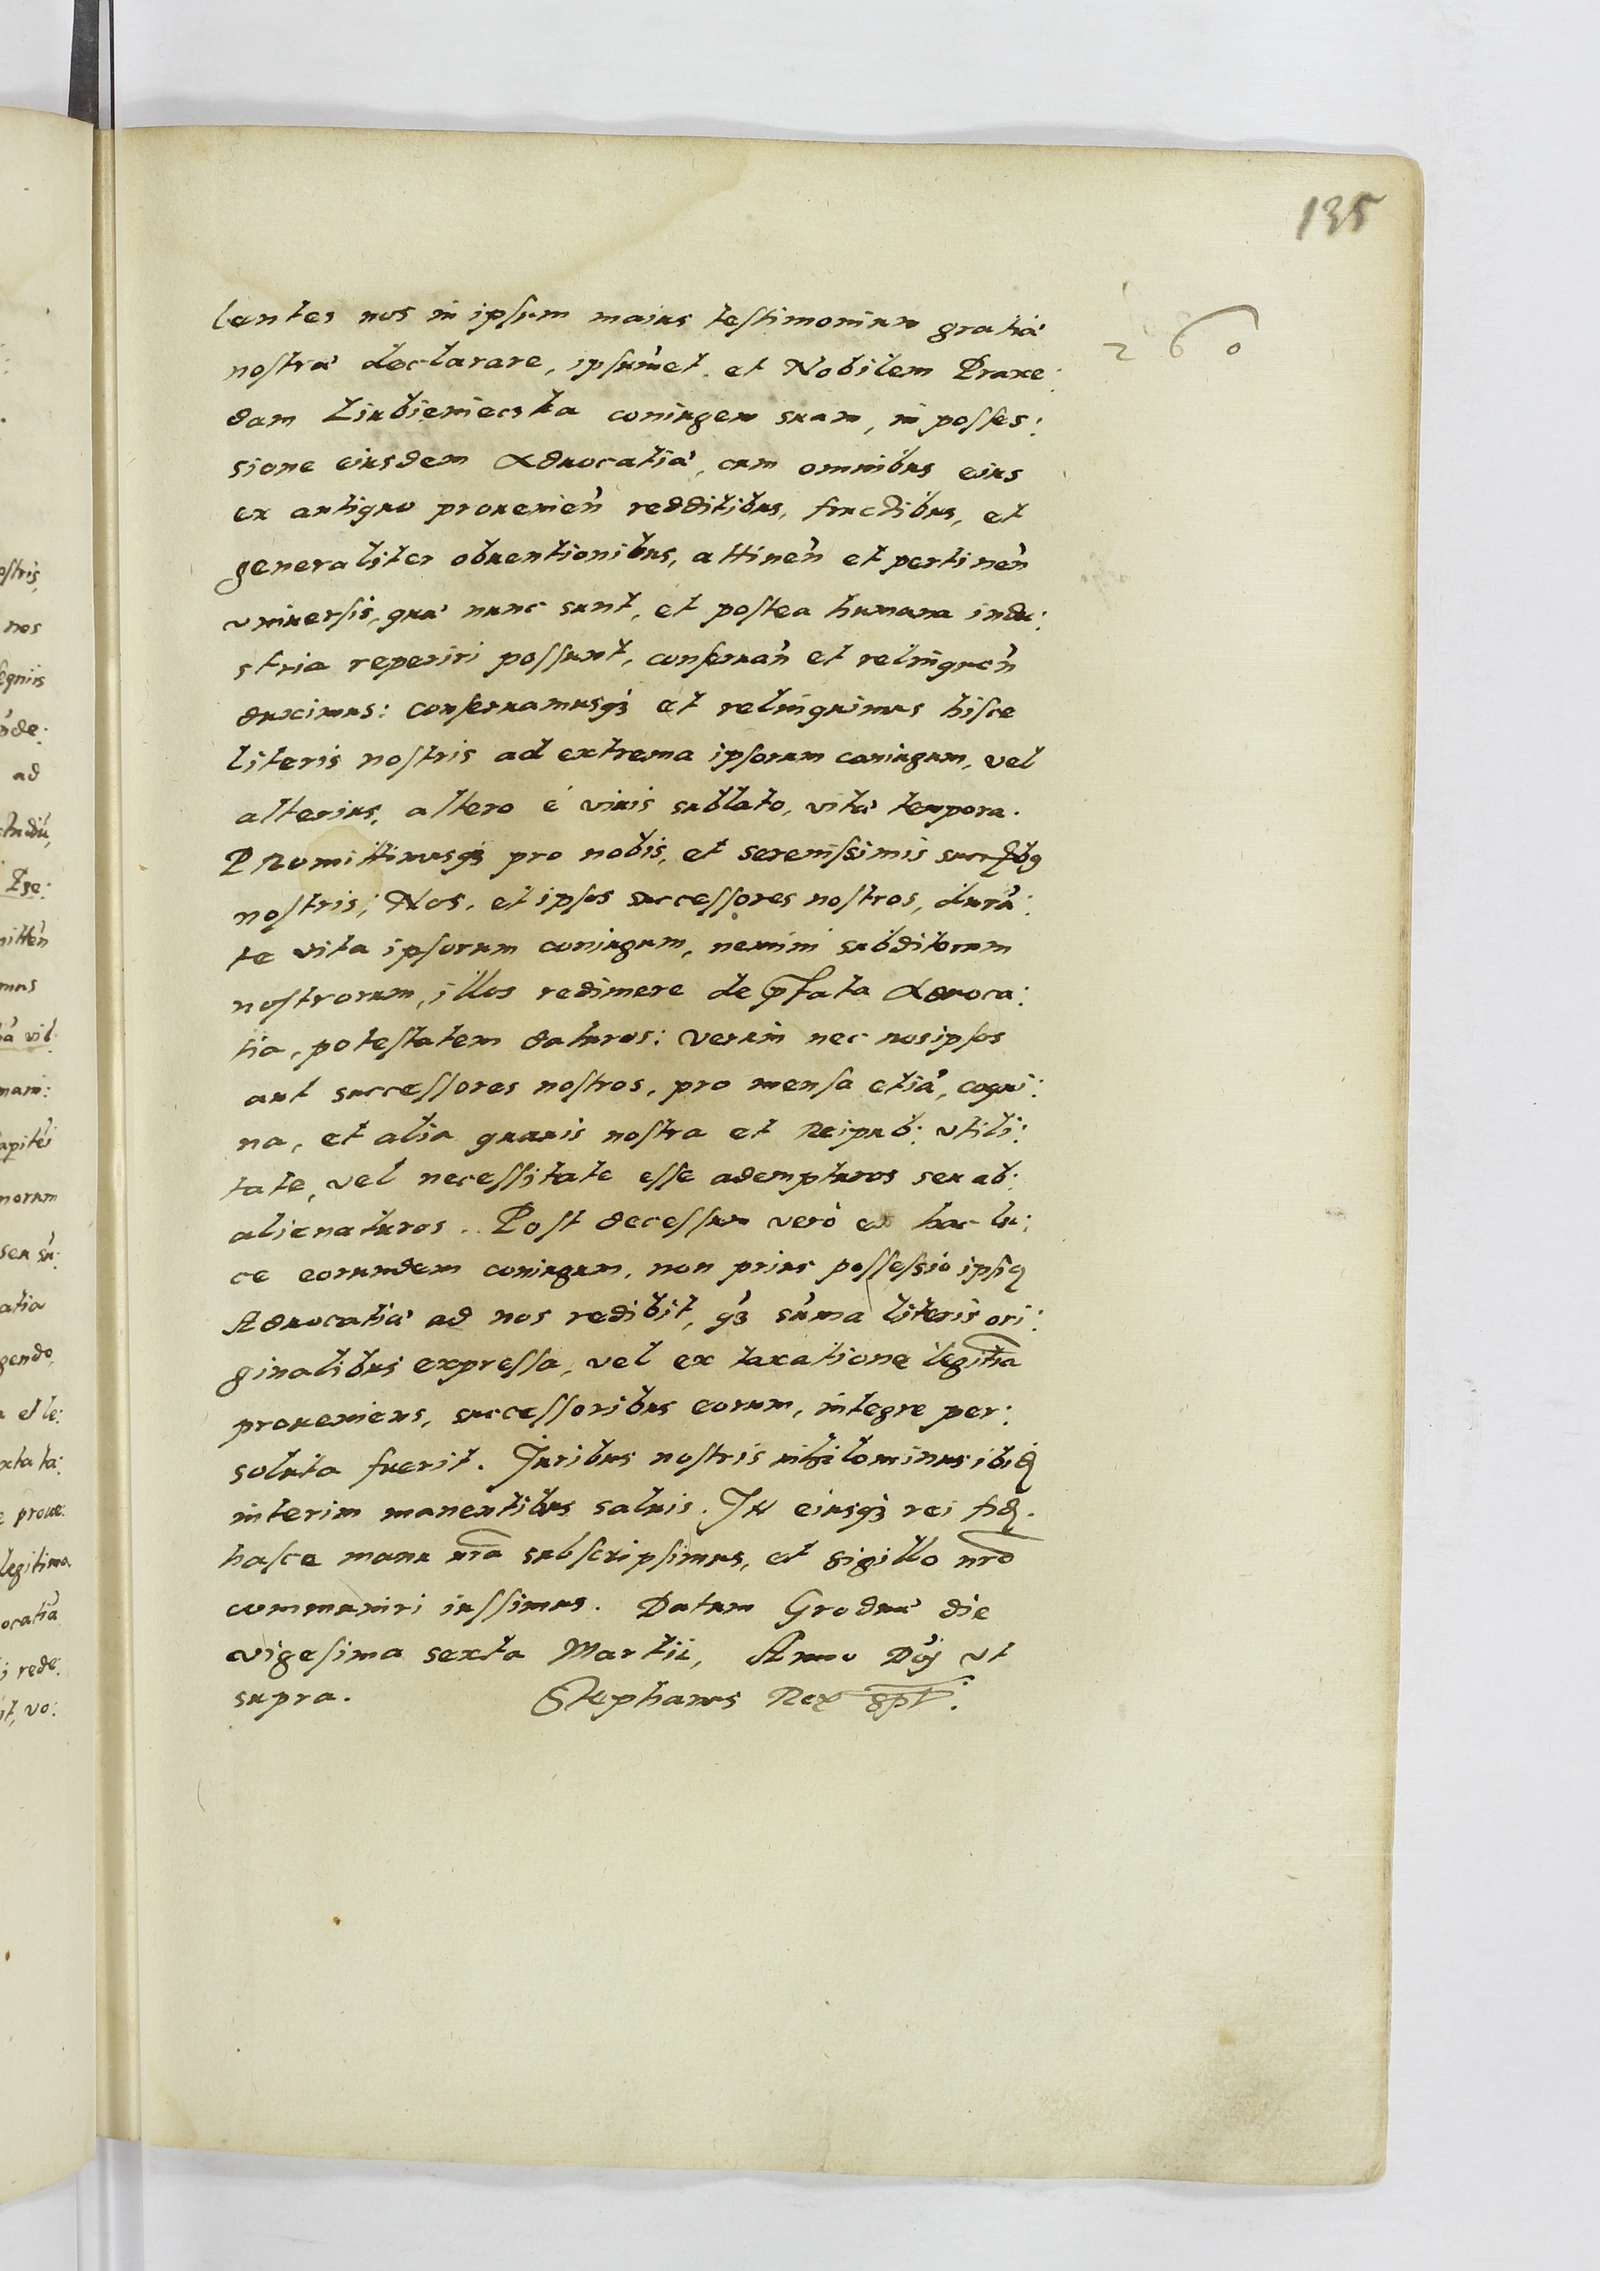 135
260
lentes nos in ipsum maius testimonium gratiæ
nostræ declarare, ipsum̃et et Nobilem Praxe:
dam Liubieniecska coniugem suam, in posses:
sione eiusdem Aduocatiæ, cum omnibus eius
ex antiquo prouenień redditibus, fructibus, et
generaliter obuentionibus, attineń et pertineń
vniuersis, quæ nunc sunt, et postea humana indu:
stria reperiri possunt, conseruań et relinqueń
duximus: conseruamusq3 et relinquimus hisce
literis nostris ad extrema ipsorum coniugum, vel
alterius, altero è viuis sublato, vitæ tempora.
PRomittimusq3 pro nobis, et serenissimis
nostris; Nos, et ipsos successores nostros, durã:
te vita ipsorum coniugum, nemini subditorum
nostrorum, illos redimere de p̃fata Aduoca:
tia, potestatem daturos: verum nec nosipsos
aut successores nostros, pro mensa etiã, coqui:
na, et alia quauis nostra et Reipub: vtili:
tate, vel necessitate esse adempturos seu ab:
alienaturos. Post decessum verò ex hac lu:
ce eorundem coniugum, non prius possessio ipsiꝗ
Aduocatiæ ad nos redibit, q̃3 sum̃a literis ori:
ginalibus expressa, vel ex taxatione legitĩa
proueniens, successoribus eorum, integre per:
soluta fuerit. Iuribus nostris nihilominus ibid̃
interim manentibus saluis. IN eiusq3 rei fid̃.
hasce manu nr̃a subscripsimus, et sigillo nr̃o
communiri iussimus. Datum Grodnæ die
vigesima sexta Martii, Anno Dnĩ vt
supra. Stephanus Rex spt.
ostris,
nos
egniis
ad
Pre:
mus
morum
atia
gendo,
et le:
xta ta:
legitima
ocatiã
rede:
it, vo: